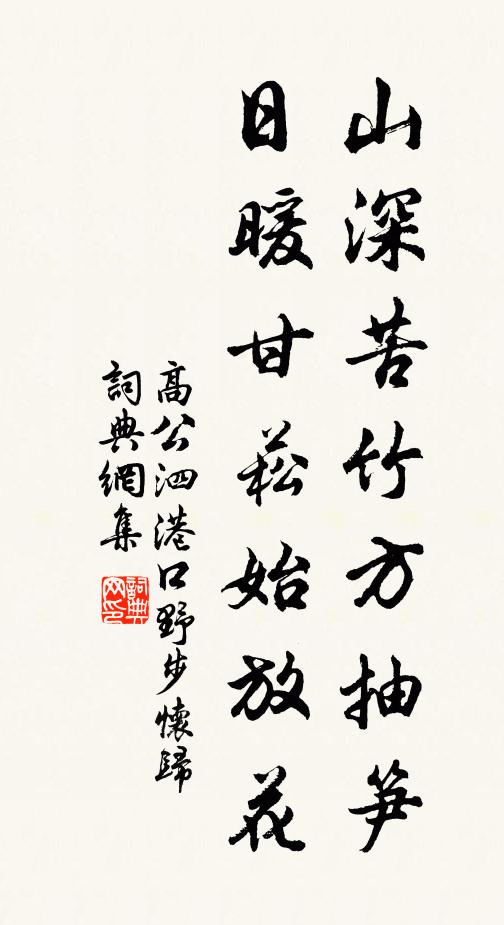 山深苦竹方抽笋
日暖甘菘始放花
高公泗港口野步懷歸
詞典網集
詞典網印